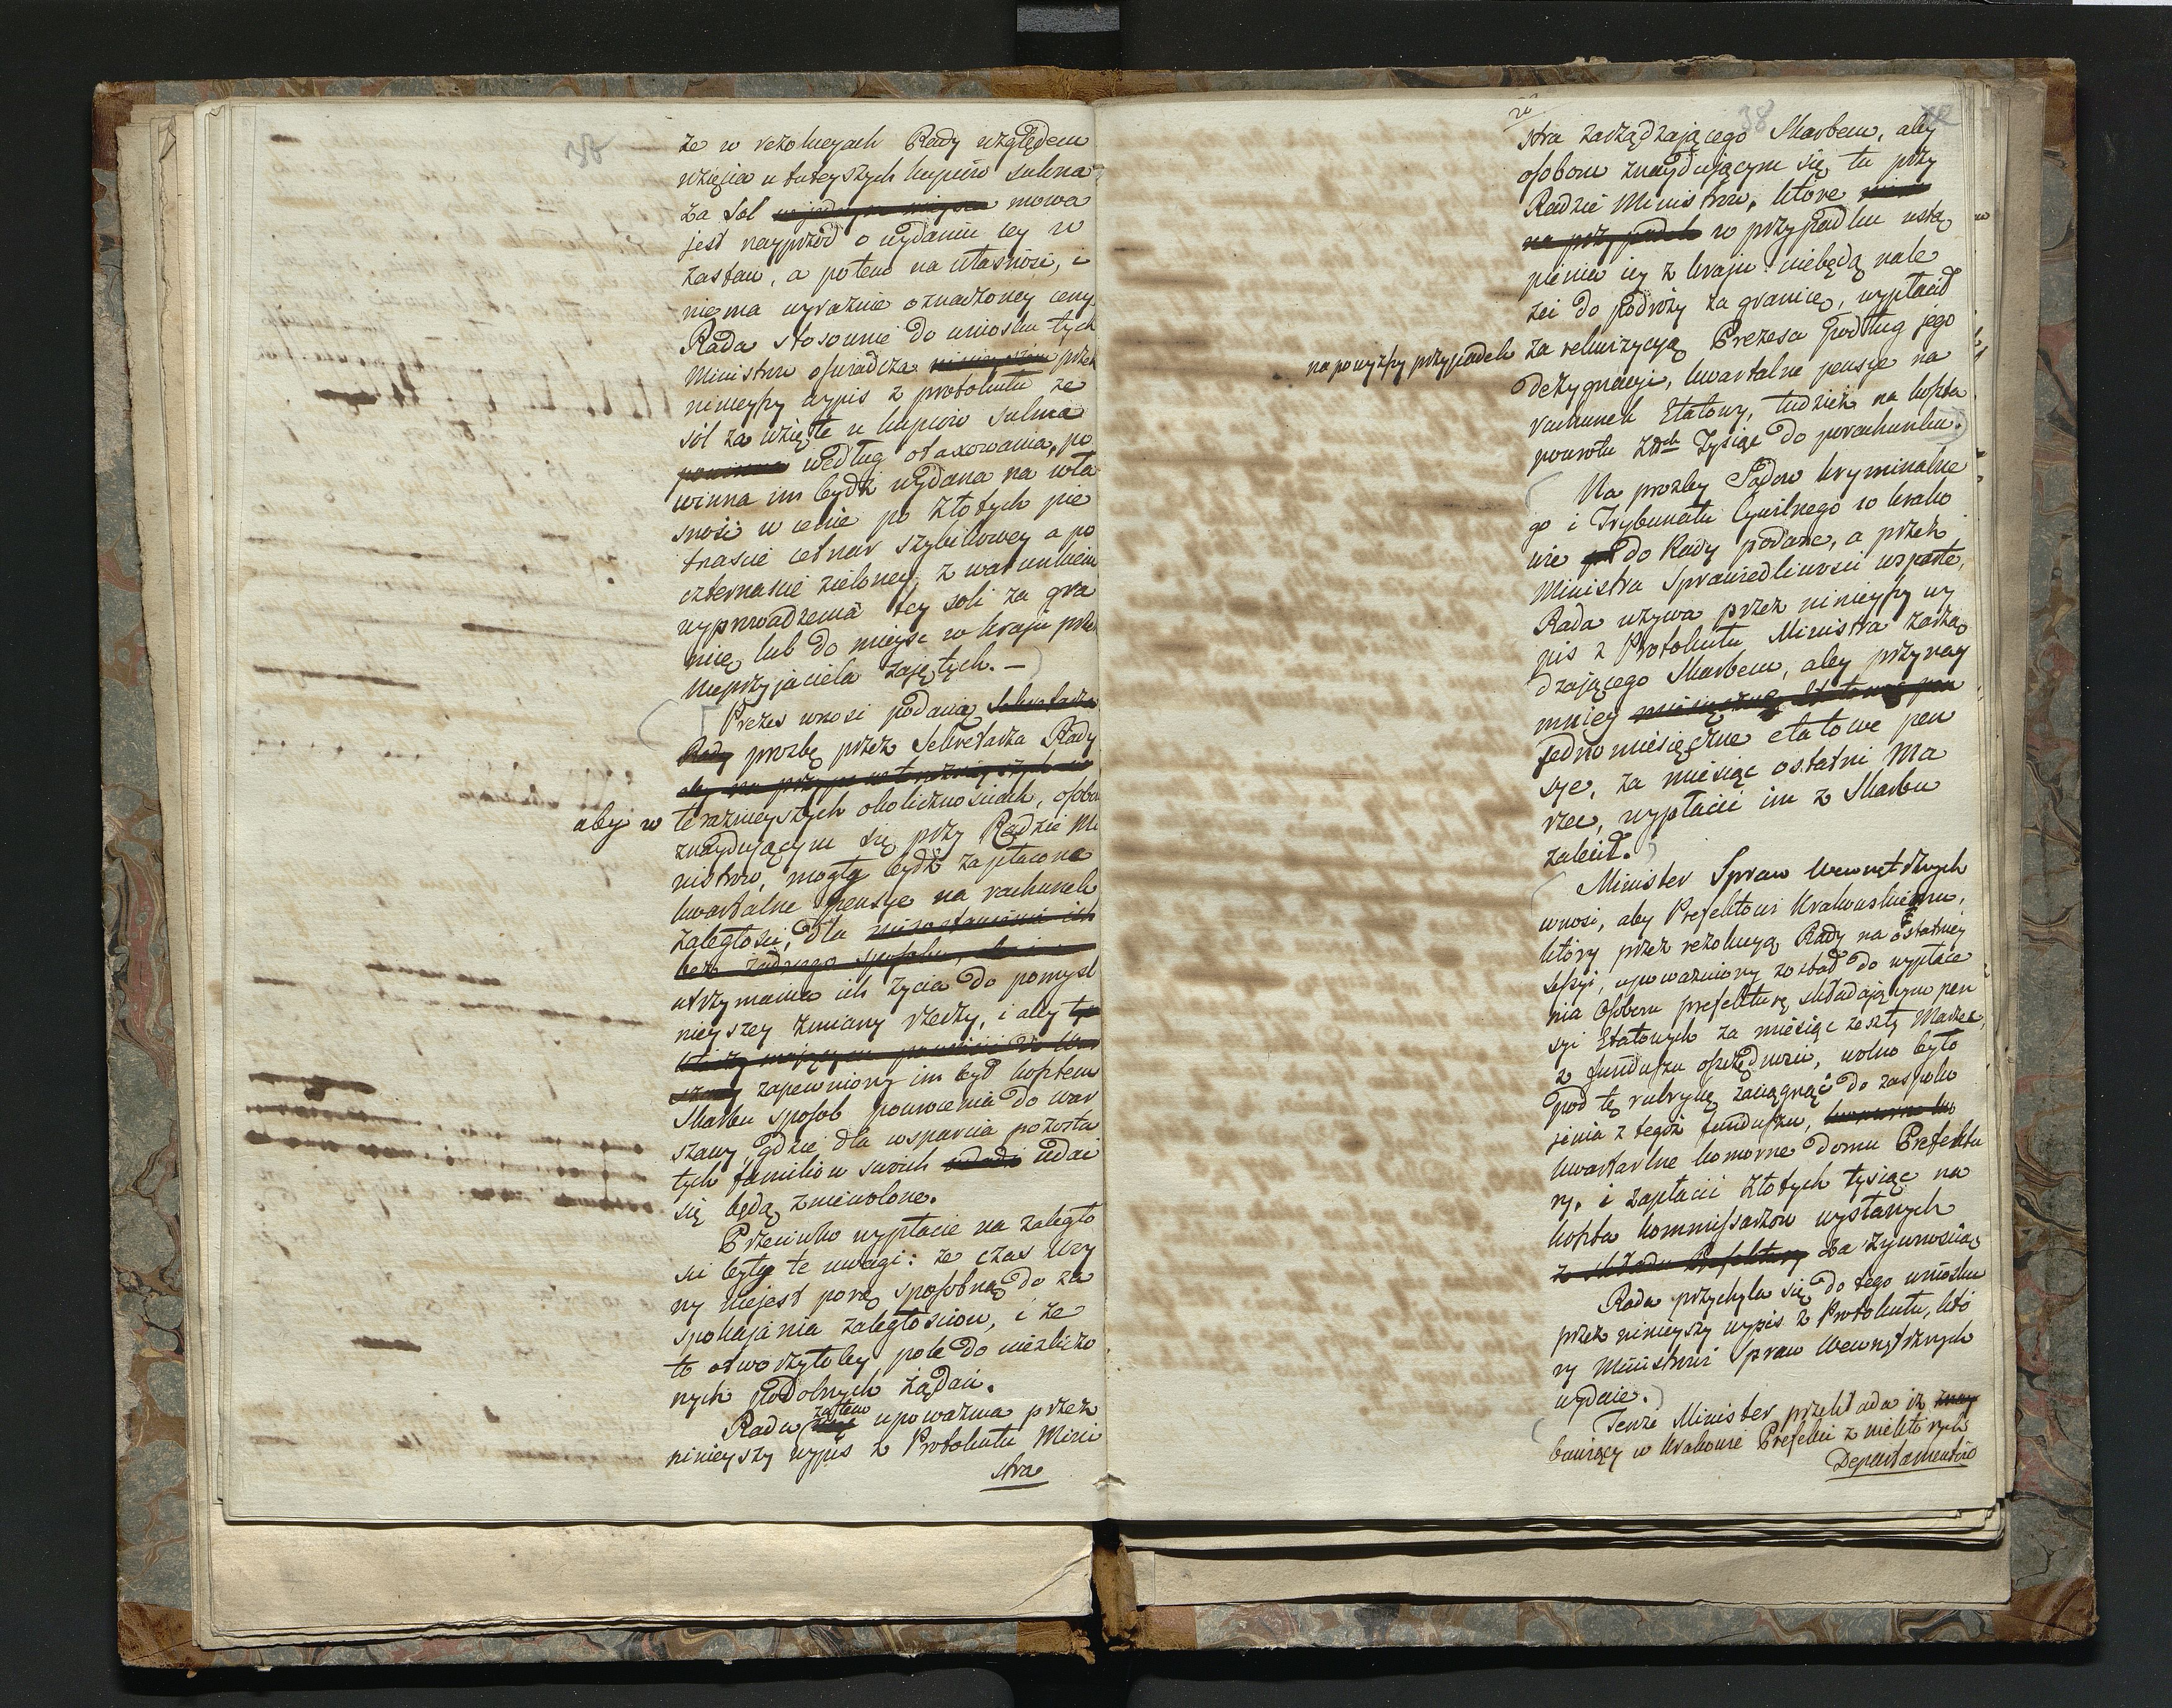 że w rezolucyach Rady względem
wzięcia u tuteyszych kupców sukna
za sól mowa
jest nayprzód o wydaniu iey w
zastaw, a potem na własność, i
niema wyraźnie oznaczoney ceny
Rada stosownie do wniosku tych
Ministrów oświadcza przez
ninieyszy wypis z protokułu że
sól za wzięte u kupców sukna
powinna według otaxowania, po
winna im bydź wydana na wła
sność w cenie po złotych pię
tnaście cetnar szybikowey a po
czternaście zieloney, z warunkiem
wyprowadzenia tey soli za gra
nicę lub do mieysc w kraju przez
nieprzyjaciela zajętych. —
Prezes wnosi podaną Sekretarza
Rady prozbę przez Sekretarza Rady
aby w teraznieyszych okolicznościach, osobom
znayduiącym się przy Radzie Mi
nistrów, mogły bydź zapłacone
kwartalne pensye na rachunek
zaległości, dla
bez żadnego sposobu,
utrzymania ich życia do pomyśl
nieyszey zmiany rzeczy, i aby
zapewniony im był kosztem
Skarbu sposób powrócenia do War
szawy, gdzie dla wsparcia pozosta
łych familiów swoich udać
się będą zniewolone.
Przeciwko wypłacie na zaległo
ści były te uwagi: że czas kry
ny niejest porą sposobną do za
spokajania zaległościów, i że
to otworzyłoby pole do niezliczo
nych podobnych żądań.
zatem
Rada upoważnia przez
ninieyszy wypis z Protokułu Mini
stra
38
stra zarządzającego Skarbem, aby
osobom znayduiącym się tu przy
Radzie Ministrów, które
na przypadek w przypadku ustą
pienia iey z kraju niebędą nale
żeć do podróży za granicę, wypłacił
na powyższy przypadek za rekwizycyą Prezesa podług jego
dezygnacyi, kwartalne pensye na
rachunek Etatowy, tudzież na koszta
powrotu Tysiąc do porachunku.
Na prozby Sądów kryminalne
go i Trybunału Cywilnego w Krako
wie do Rady podane, a przez
Ministra Sprawiedliwości wsparte,
Rada wzywa przez ninieyszy wy
pis z Protokułu Ministra zarzą
dzającego Skarbem, aby przynay
mniey
jedno miesięczne etatowe pen
sye, za miesiąc ostatni Ma
rzec, wypłacić im z Skarbu
zalecił.
Minister Spraw Wewnętrznych
wnosi, aby Prefektowi Krakowskiemu,
który przez rezolucyą Rady na ostatniey
sessyi, upoważniony został do wypłace
nia Osobom prefekturę składającym pen
syi Etatowych za miesiąc zeszły Marzec,
z funduszu oszczędności, wolno było
pod tę rubrykę zaciągnąć do zaspoko
jenia z tegoż funduszu,
kwartalne komorne domu Prefektu
ry, i zapłacić złotych tysiąc na
koszta kommissarzów wysłanych
z składu Prefektury za żywnością
Rada przychyla się do tego wniosku
przez ninieyszy wypis z Protokułu, któ
ry Ministrowi Spraw Wewnętrznych
wydaie.
Tenże Minister przekłada iż
bawiący w Krakowie Prefekci z niektórych
Departamentów